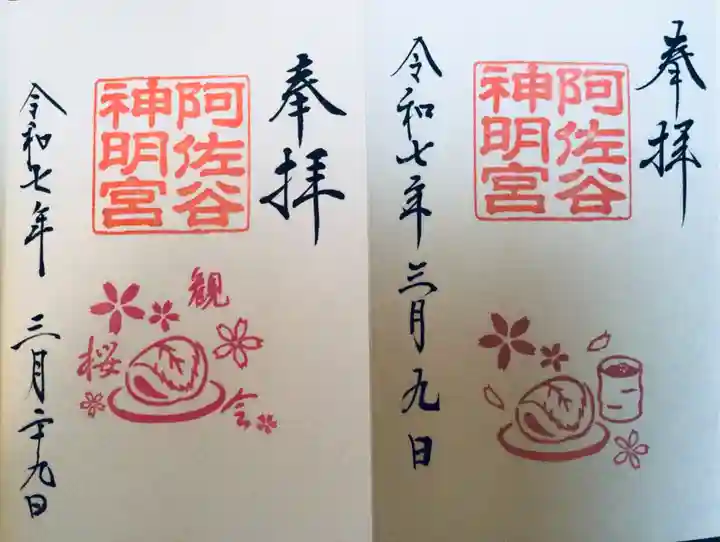 奉拝
阿佐谷
神明宮
令和七年 三月二十九日
観
桜
会
奉拝
阿佐谷
神明宮
令和七年三月九日